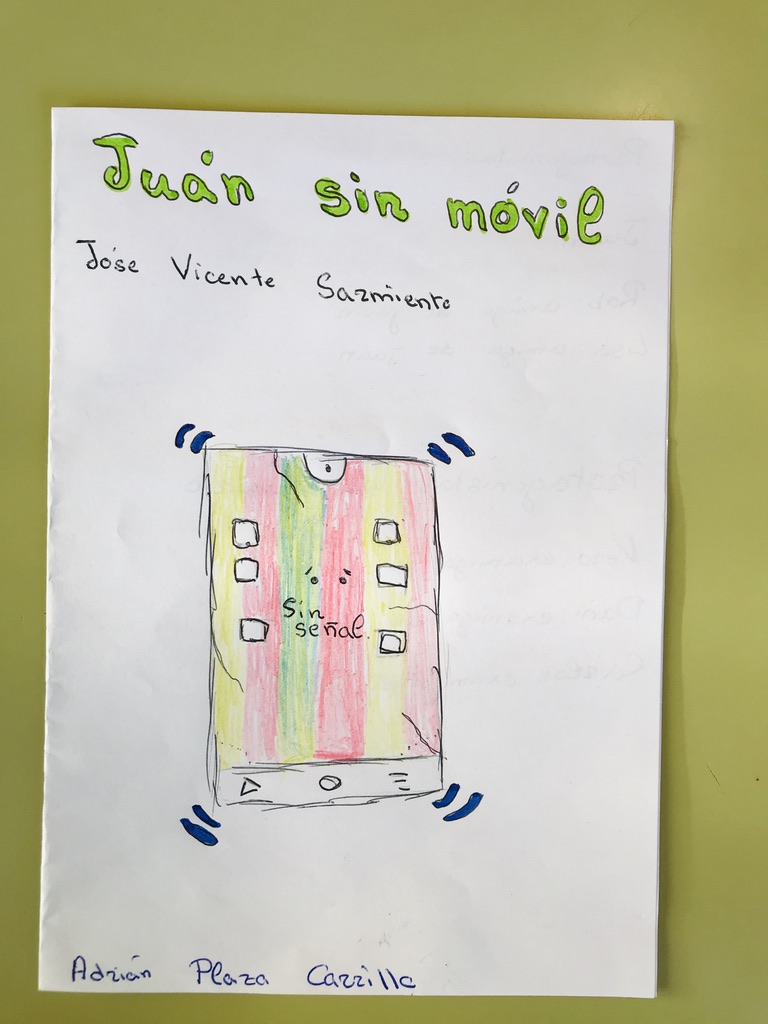 Juán sin móvil
Jóse Vicente Sarmiento
Sin
señal.
Adrián Plaza Carrillo